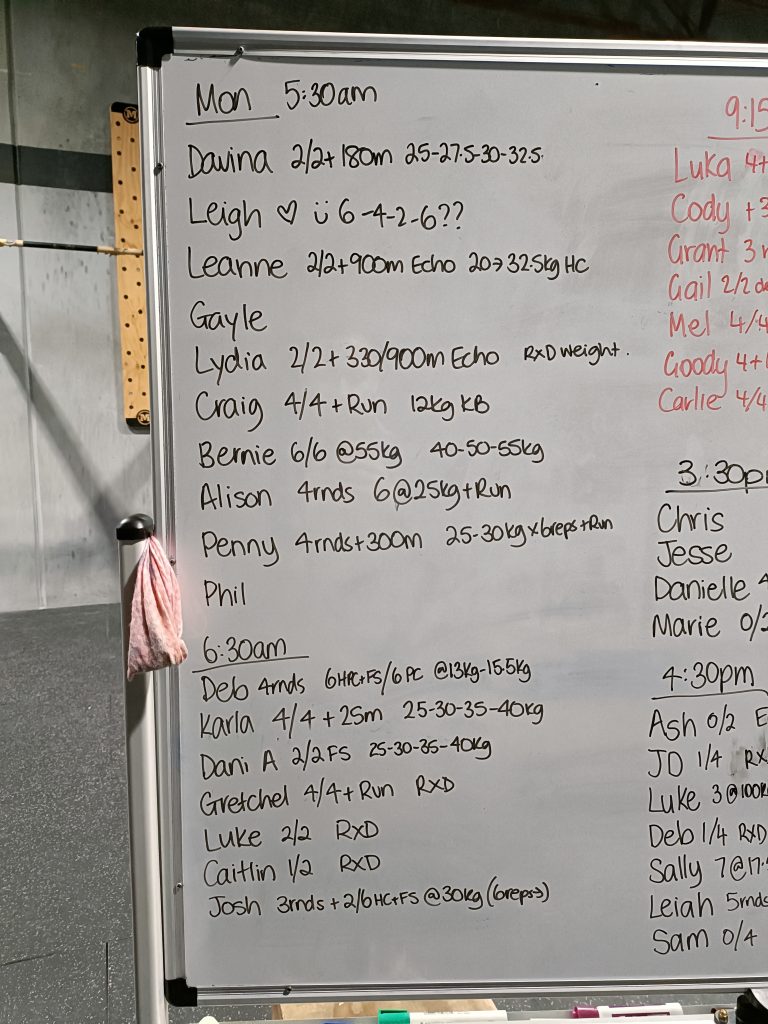 Mon 5:30am
Davina 2/2+180m 25-27.5-30-32.5
Leigh ♡ ü 6-4-2-6??
Leanne 2/2+900m Echo 20→32.5kg HC
Gayle
Lydia 2/2+330/900m Echo RxD weight.
Craig 4/4+Run 12kg KB
Bernie 6/6 @55kg 40-50-55kg
Alison 4rnds 6@25kg+Run
Penny 4rnds+300m 25-30kg x 6reps+Run
Phil
6:30am
Deb 4rnds 6HPC+FS/6PC @13kg-15.5kg
Karla 4/4+25m 25-30-35-40kg
Dani A 2/2 FS 25-30-35-40kg
Gretchel 4/4+Run RXD
Luke 2/2 RXD
Caitlin 1/2 RXD
Josh 3rnds+2/6HC+FS @30kg (6reps→)
9:15
Luka 4+
Cody +3
Grant 3
Gail 2/2
Mel 4/4
Goody 4+
Carlie 4/4
3:30p
Chris
Jesse
Danielle 4
Marie 0/2
4:30pm
Ash 0/2 E
JD 1/4 RX
Luke 3@100k
Deb 1/4 RXD
Sally 7@17.
Leiah 5rnds
Sam 0/4